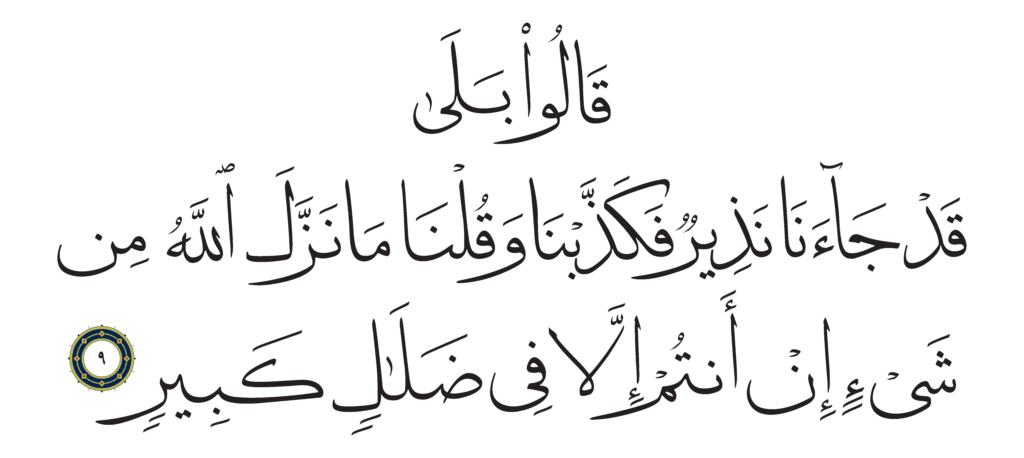 قَالُوا۟ بَلَىٰ
قَدْ جَآءَنَا نَذِيرٌ فَكَذَّبْنَا وَقُلْنَا مَا نَزَّلَ ٱللَّهُ مِن
شَىْءٍ إِنْ أَنتُمْ إِلَّا فِى ضَلَـٰلٍ كَبِيرٍ ٩